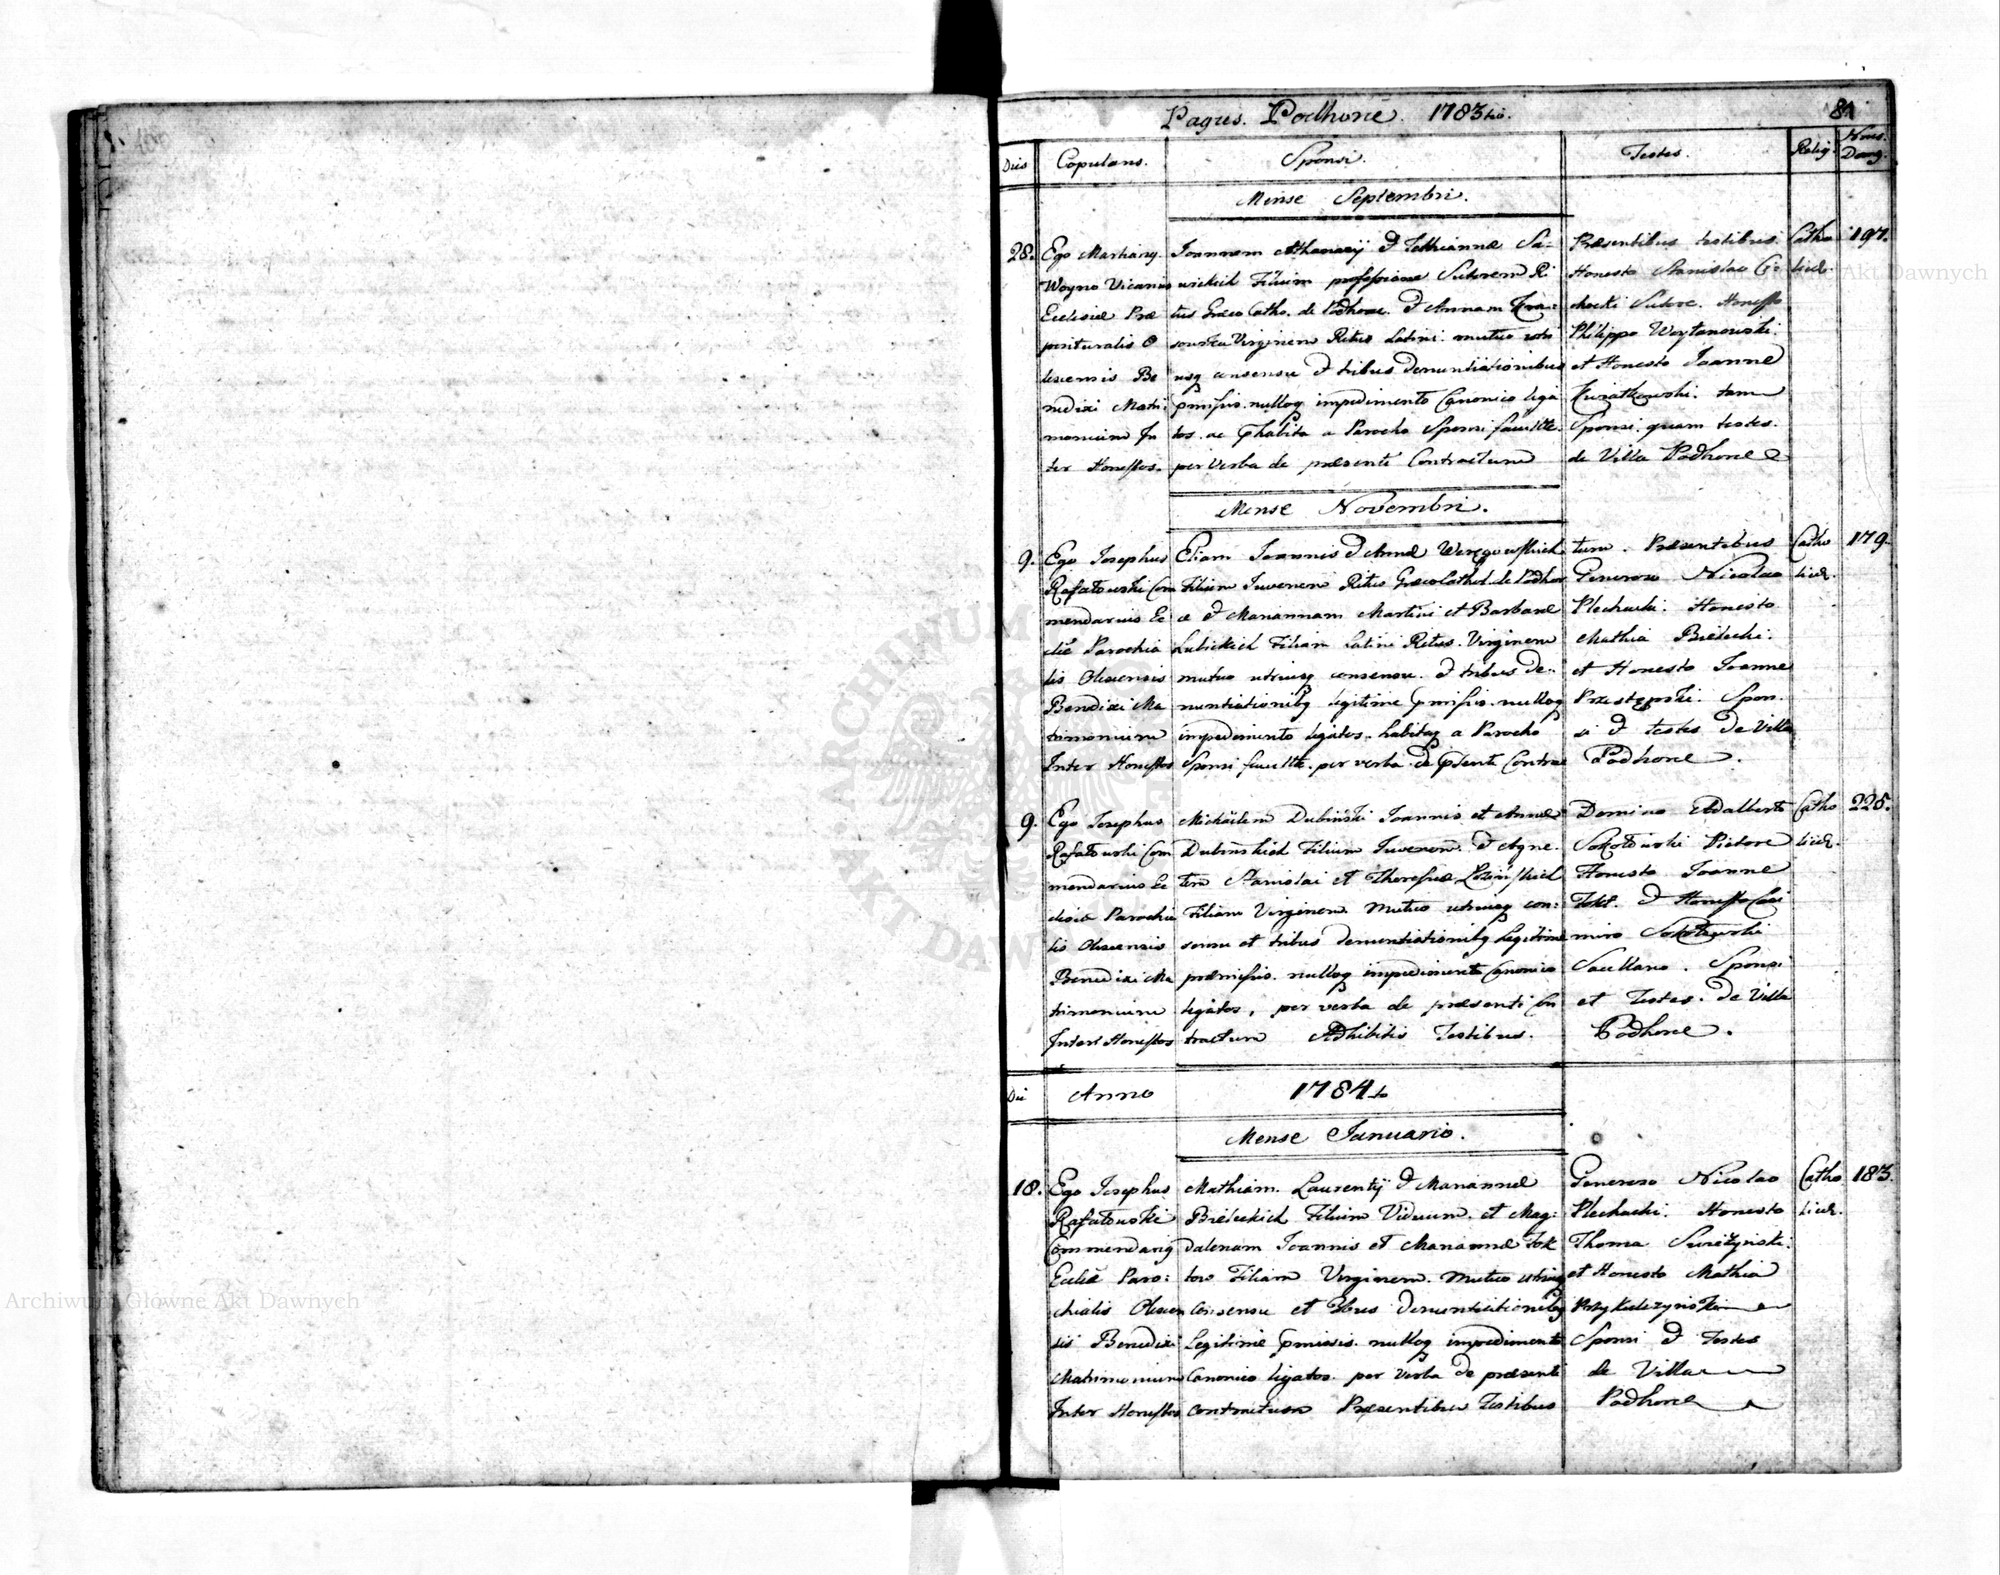 Pagus. Podhorce. 1783tio.
81
Dies
Copulans.
Sponsi.
Testes.
Relig.
Nrus. Domq.
Mense Septembri.
28.
Ego Martiang.
Woyno Vicarius
Ecclesiæ Præ
posituralis O
lescensis Be
nedixi Matri
monium In
ter Honestos.
Joannem Athanasij &
wickich Filium professione Sutorem Ri
tus Græco Catho. de Podhorce. & Annam
Virginem Ritus Latini. mutuo utri
usq consensu & tribus Denuntiationibus
pmissis. nulloq impedimento Canonico liga
tos. ac phabita a Parocho Sponsi facultte.
per Verba de præsenti Contractum
Præsentibus testibus.
Honesto Stanislao
Sutore. Honesto
Philippo Woytanowski.
et Honesto Joanne
Kwiatkowski. tam
Sponsi. quam testes.
de Villa Podhorce
Catho
licæ.
197.
Mense Novembri.
9.
Ego Josephus
Rafałowski Com
mendarius Ec
cliæ Parochia
lis Olescensis
Benedixi Ma
trimonium
Inter Honestos
Eliam Joannis & Annæ
Filium Juvenem Ritus GræcoCathol. de Podhor
ce & Mariannam Martini et Barbaræ
Lubickich Filiam Latini Ritus. Virginem
mutuo utriusq consensu. & tribus De-
nuntiationibq legitime pmissis. nulloq
impedimento ligatos. habitaq a Parocho
Sponsi facultte. per verba de psenti Contrac
tum. Præsentibus
Generoso Nicolao
Plechacki. Honesto
Mathia Bielecki.
et Honesto Joanne
Przestępski. Spon.
si & testes de Villa
Podhorce.
Catho
licæ.
179.
9.
Ego Josephus
Rafałowski Com
mendarius Ec
clesiæ Parochia
lis Olescensis
Benedixi Ma
trimonium
Inter Honestos
Michaelem Dubiński Joannis et Annæ
Dubińskich Filium Juvenem. & Agne.
tem Stanislai et Theresiæ
Filiam Virginem. Mutuo utriusq con:
sensu et tribus denuntiationibq Legitime
præmissis. nulloq impedimento Canonico
ligatos, per verba de præsenti Con
tractum Adhibitis Testibus.
Domino Adalberto
Sokołowski Pictore
Honesto Joanne
& Honesto Casi
miro Sokołowski
Sacellano. Sponsi
et Testes. de Villa
Podhorce.
Catho
licæ.
225.
Die
Anno
1784to
Mense Januario.
18.
Ego Josephus
Rafałowski
Commendarq
Eccliæ Paro:
chialis Olescen
sis Benedixi
Matrimonium
Inter Honestos
Mathiam. Laurentij & Mariannæ
Bieleckich Filium Viduum. et Mag:
dalenam Joannis et Mariannæ
Filiam Virginem. Mutuo utriusq
Consensu et 3bus Denuntiationibq
Legitime pmissis. nulloq impedimento
Canonico ligatos. per Verba de præsenti
contractum Præsentibus Testibus
Generoso Nicolao
Plechacki. Honesto
Thoma
et Honesto Mathia
Sponsi & Testes
de Villa
Podhorce
Catho
licæ.
183.
Archiwum Główne Akt Dawnych
Akt Dawnych
ARCHIWUM
AKT DAW